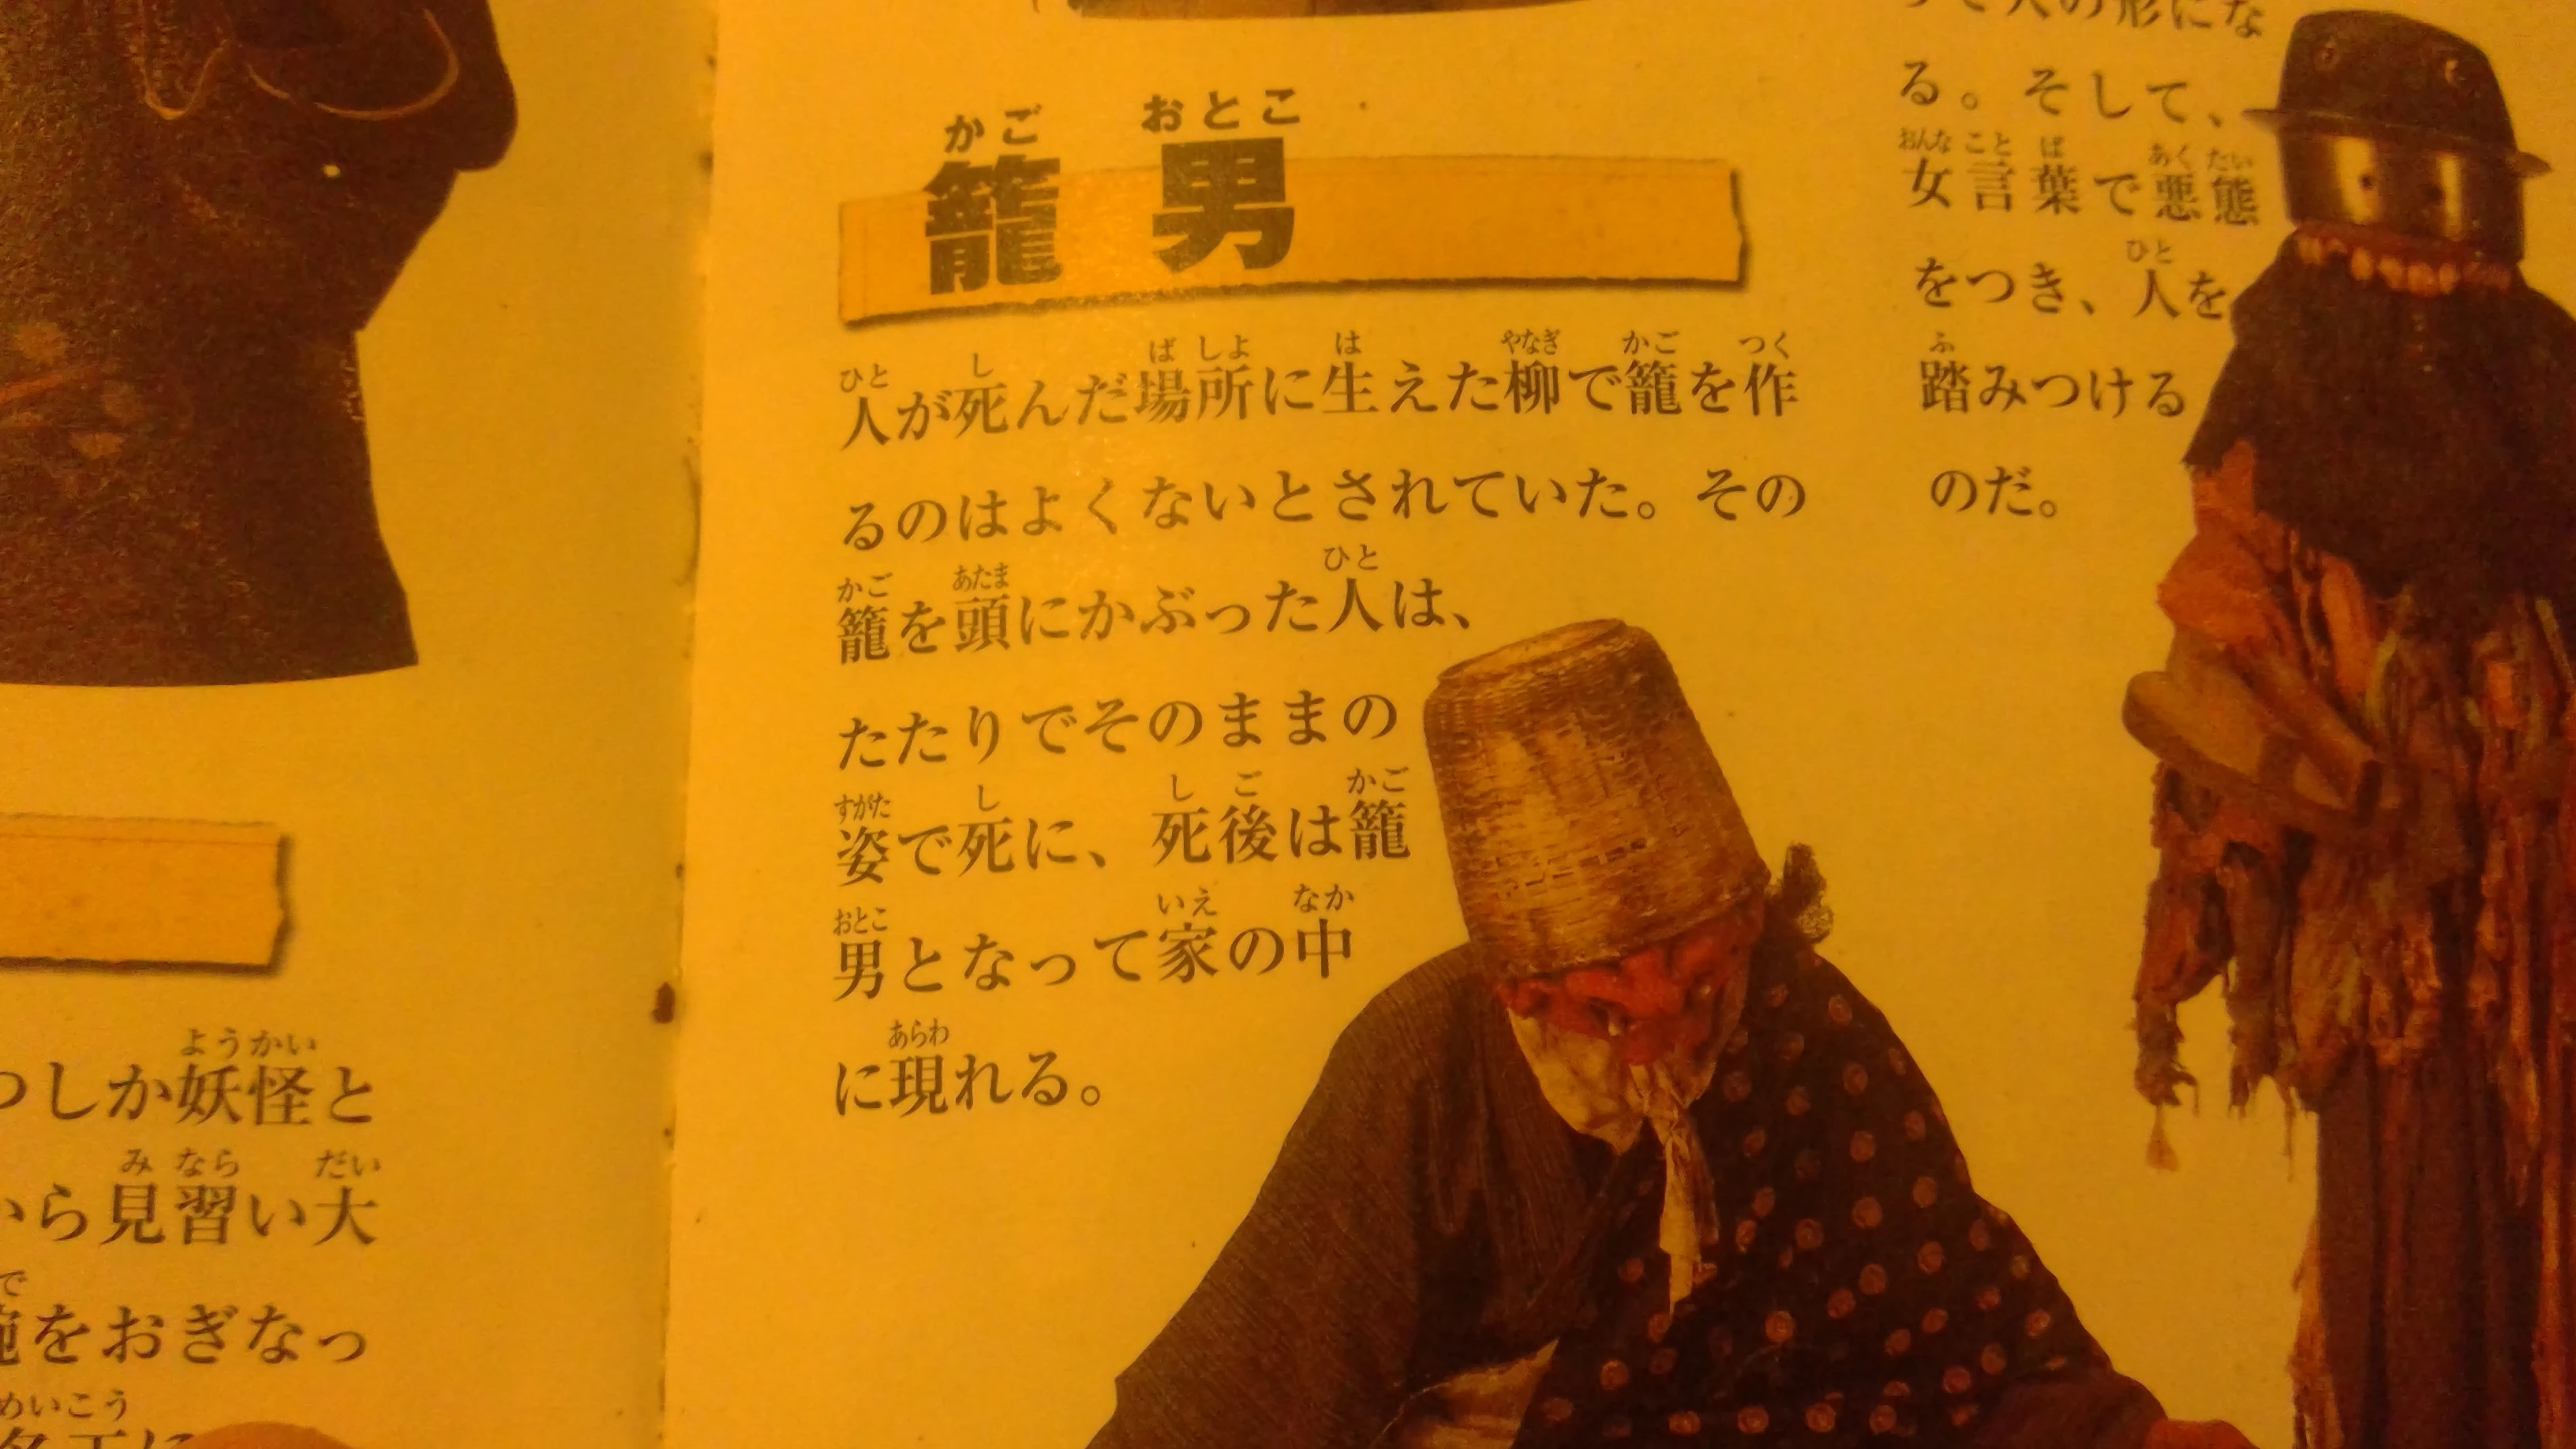 籠男
人が死んだ場所に生えた柳で籠を作
るのはよくないとされていた。その
籠を頭にかぶった人は、
たたりでそのままの
姿で死に、死後は籠
男となって家の中
に現れる。
る。そして、
女言葉で悪態
をつき、人を
踏みつける
のだ。
つしか妖怪と
から見習い大
をおぎなっ